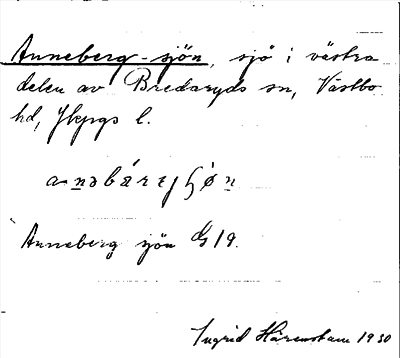 Anneberg-sjön, sjö i västra
delen av Bredaryds sn, Västbo
hd, Jkpgs l.
Anneberg sjön G 19.
Ingrid Härenstam 1930